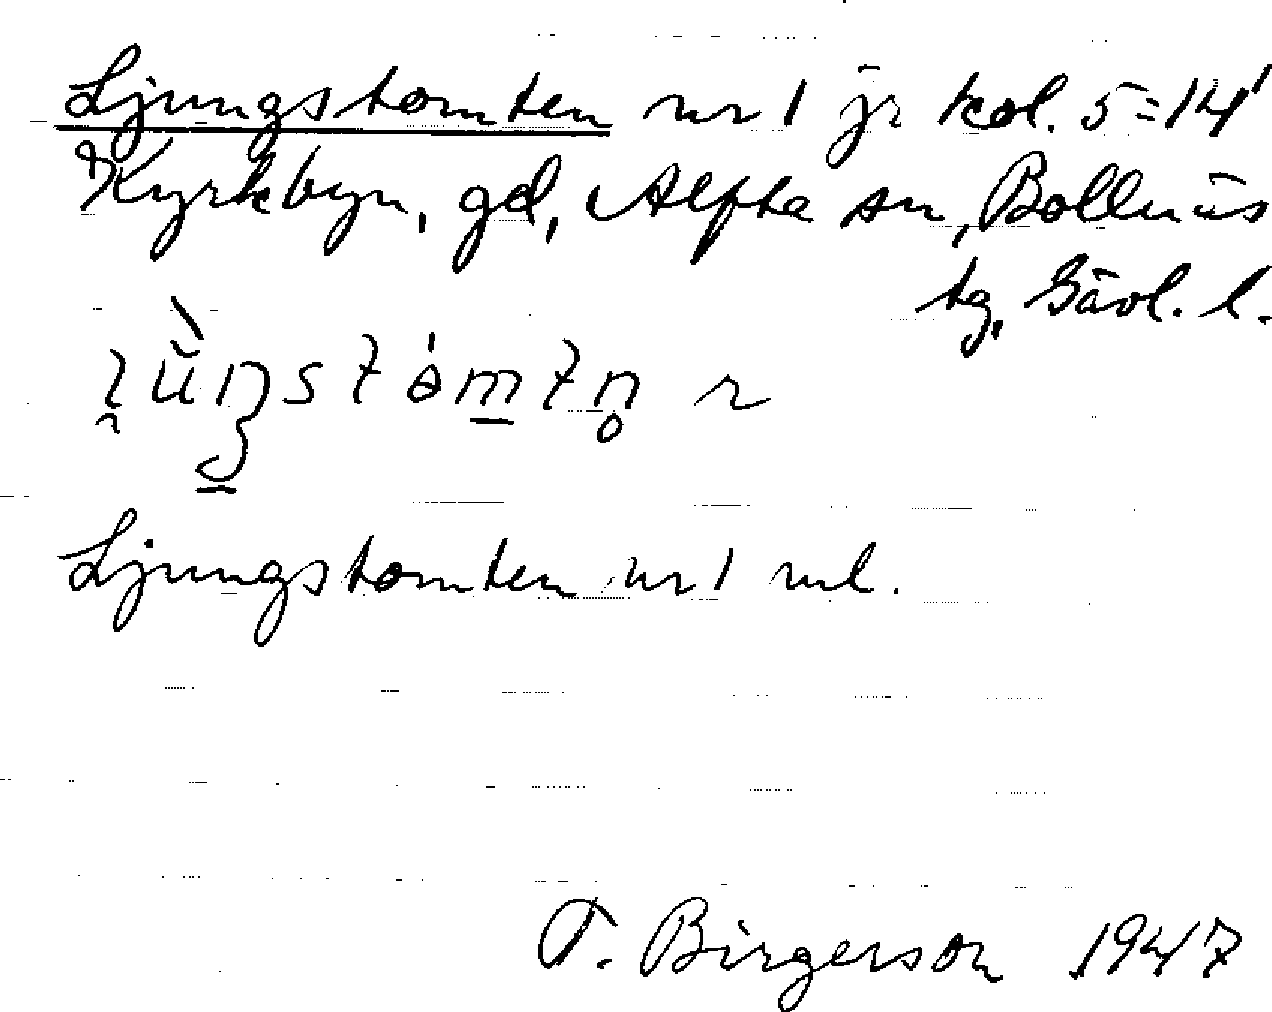 Ljungstomten nr 1 jr kol. 5=14'
Kyrkbyn, gd, Alfta sn, Bollnäs
tg, Gävl. l.
Ljungstomten nr 1 ml.
T. Birgerson 1947